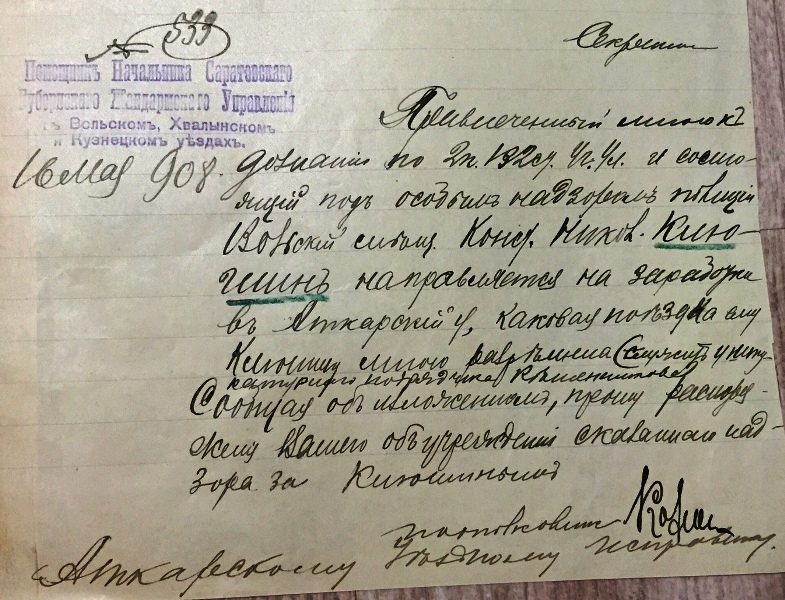 № 533
Секретно
Помощникъ Начальника Саратовскаго
Губернскаго Жандармскаго Управленія
въ Вольскомъ, Хвалынскомъ
и Кузнецкомъ уѣздахъ.
16 Мая 908.
Привлеченный мною къ
дознанію по 2 ч. 132 ст. Уг. Ул. и состо-
ящій подъ особымъ надзоромъ полиціи
Вольскій мѣщ. Конст. Никол. Клю-
шинъ направляется на заработки
въ Аткарскій у, каковая поѣздка ему
Клюшину мною разрѣшена (служить у
подрядчика
Сообщая объ изложенномъ, прошу распоря-
женія Вашего объ учрежденіи сказаннаго над-
зора за Клюшинымъ
Подполковникъ
Аткарскому Уѣздному Исправнику.